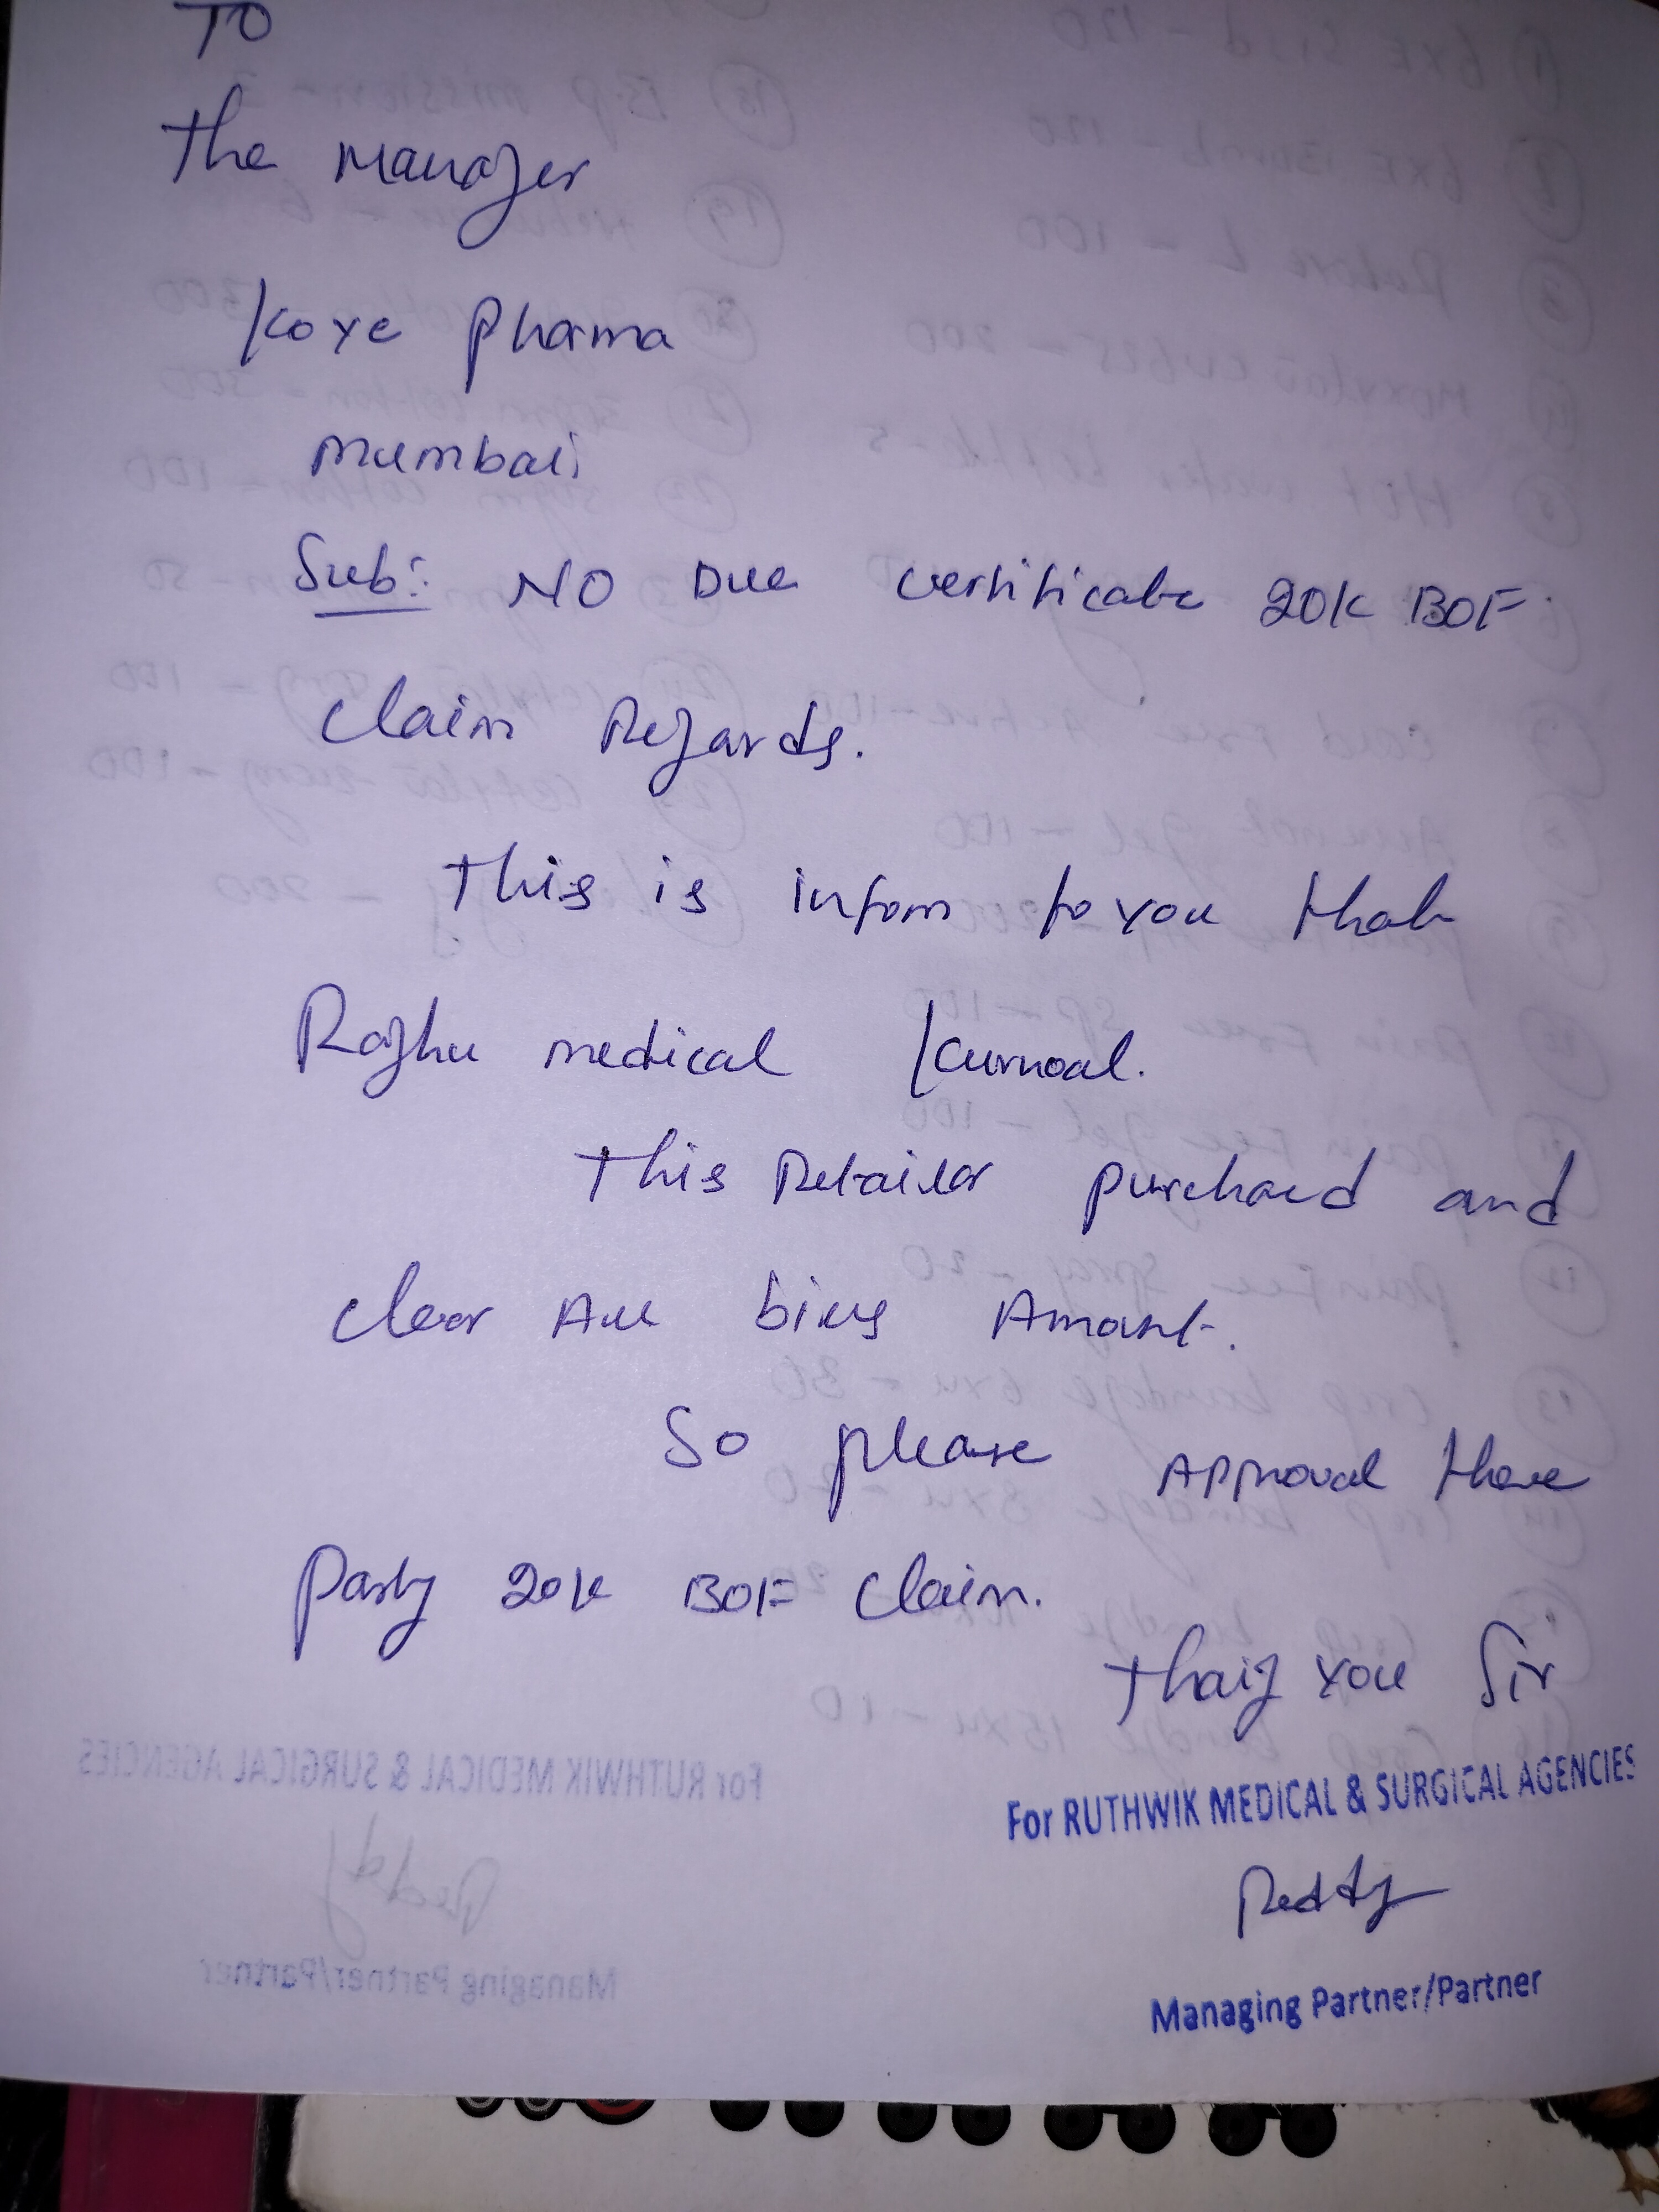 TO
The Manager
Koye Pharma
Mumbai
Sub: NO Due certificate 20K BOF
claim Regards.
This is infom to you that
Raghu medical Kurnoal.
This Retailer purchaed and
clear All bills Amount.
So please Approval these
party 20K BOF claim.
Thaig you Sir
For RUTHWIK MEDICAL & SURGICAL AGENCIES
Reddy
Managing Partner/Partner